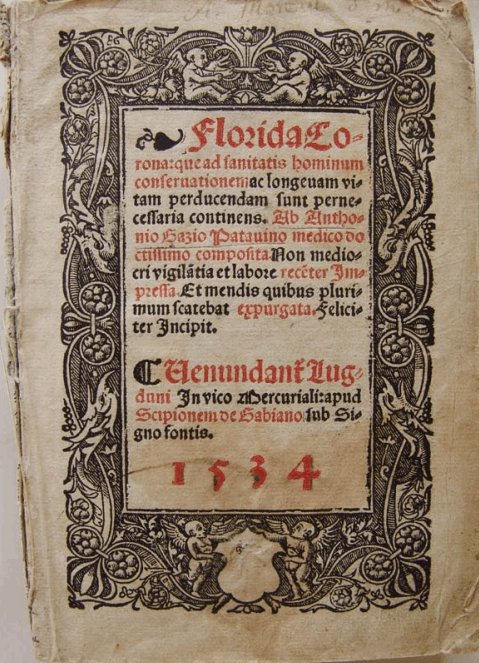 Florida Co-
rona: que ad sanitatis hominum
conseruationem ac longeuam vi-
tam perducendam sunt perne-
cessaria continens. Ab Antho-
nio Gazio Patauino medico do
ctissimo composita. Non medio-
cri vigilātia et labore recēter Im-
pressa. Et mendis quibus pluri-
mum scatebat expurgata. Felici-
ter Incipit.
Uenundant Lug-
duni In vico Mercuriali: apud
Scipionem de Gabiano: sub Si-
gno fontis.
1534